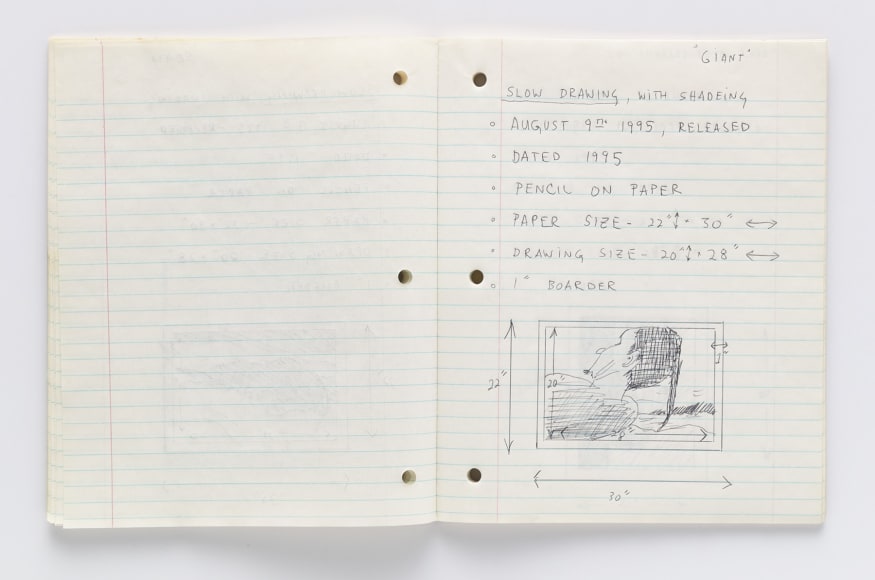 "GIANT"
SLOW DRAWING, WITH SHADEING
◦ AUGUST 9TH 1995, RELEASED
◦ DATED 1995
◦ PENCIL ON PAPER
◦ PAPER SIZE - 22"↕ × 30" ↔
◦ DRAWING SIZE - 20"↕ × 28" ↔
◦ 1" BOARDER
1"
22"
20"
28"
30"